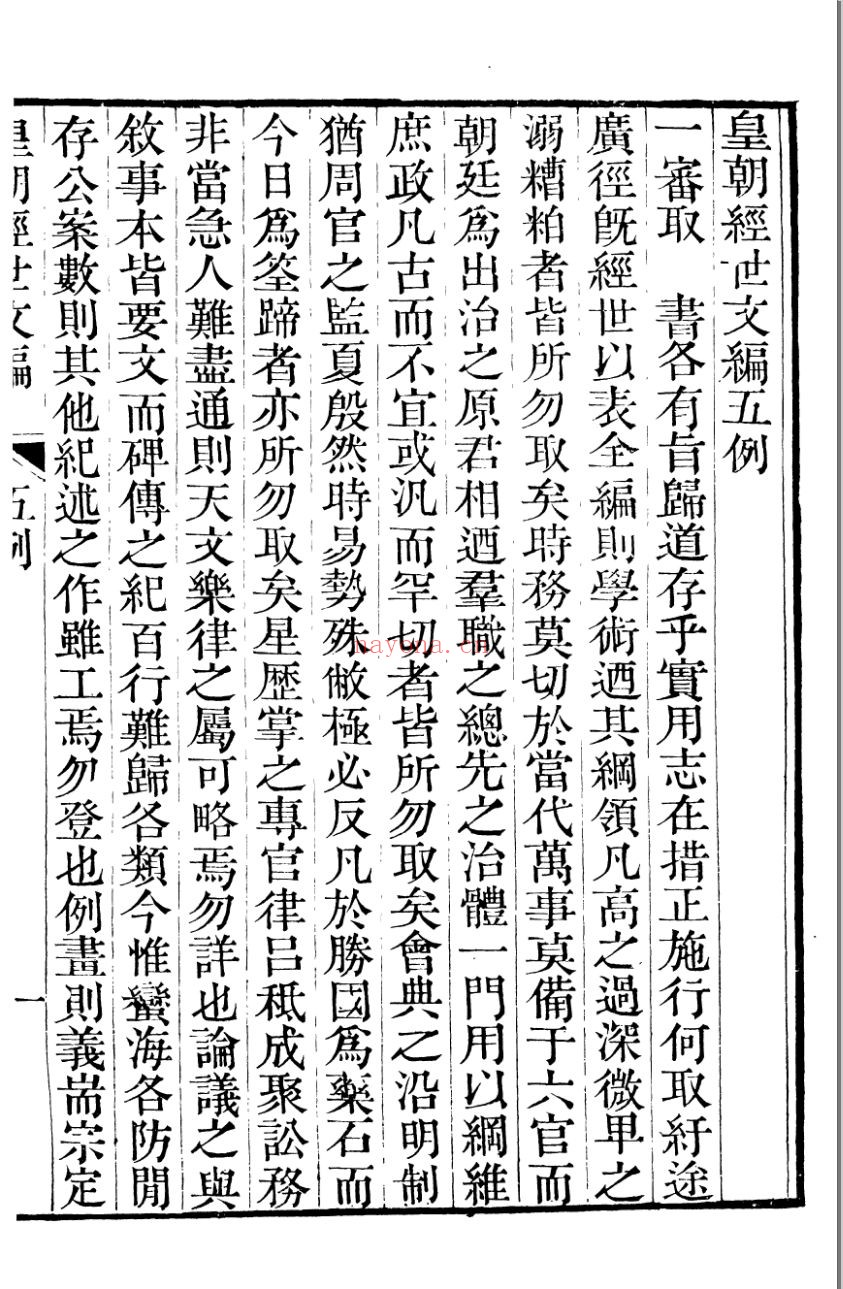 皇朝經世文編五例
一審取　書各有旨歸道存乎實用志在措正施行何取紆途
廣徑旣經世以表全編則學術迺其綱領凡高之過深微卑之
溺糟粕者皆所勿取矣時務莫切於當代萬事莫備于六官而
朝廷爲出治之原君相迺羣職之總先之治體一門用以綱維
庶政凡古而不宜或汎而罕切者皆所勿取矣會典之沿明制
猶周官之監夏殷然時易勢殊敝極必反凡於勝國爲藥石而
今日爲筌蹄者亦所勿取矣星歷掌之專官律呂秪成聚訟務
非當急人難盡通則天文樂律之屬可略焉勿詳也論議之與
敘事本皆要文而碑傳之紀百行難歸各類今惟蠻海各防閒
存公案數則其他紀述之作雖工焉勿登也例畫則義耑宗定
皇朝經世文編　五例　一
nayona.cn